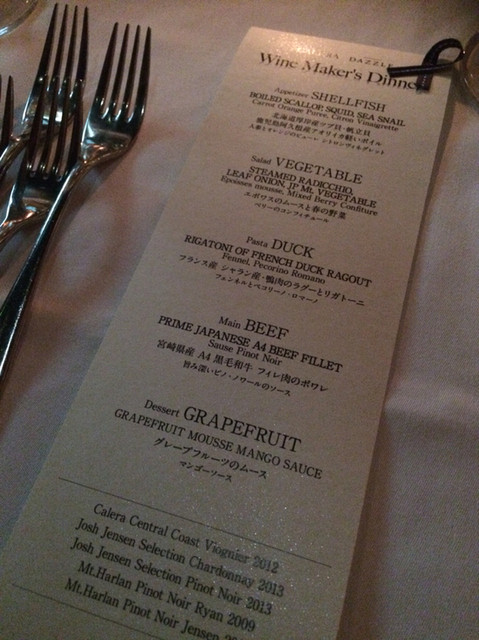 DAZZLE
Wine Maker's Dinner
Appetizer SHELLFISH
BOILED SCALLOP, SQUID, SEA SNAIL
Carrot Orange Puree, Citron Vinaigrette
北海道厚岸産ツブ貝・帆立貝
鹿児島阿久根産アオリイカ軽いボイル
人参とオレンジのピューレ シトロンヴィネグレット
Salad VEGETABLE
STEAMED RADICCHIO,
LEAF ONION, JP Mt, VEGETABLE
Epoisses mousse, Mixed Berry Confiture
エポワスのムースと春の野菜
ベリーのコンフィチュール
Pasta DUCK
RIGATONI OF FRENCH DUCK RAGOUT
Fennel, Pecorino Romano
フランス産 シャラン産・鴨肉のラグーとリガトーニ
フェンネルとペコリーノ・ロマーノ
Main BEEF
PRIME JAPANESE A4 BEEF FILLET
Sause Pinot Noir
宮崎県産 A4 黒毛和牛 フィレ肉のポワレ
旨み深いピノ・ノワールのソース
Dessert GRAPEFRUIT
GRAPEFRUIT MOUSSE MANGO SAUCE
グレープフルーツのムース
マンゴーソース
Calera Central Coast Viognier 2012
Josh Jensen Selection Chardonnay 2013
Josh Jensen Selection Pinot Noir 2013
Mt.Harlan Pinot Noir Ryan 2009
Mt.Harlan Pinot Noir Jensen